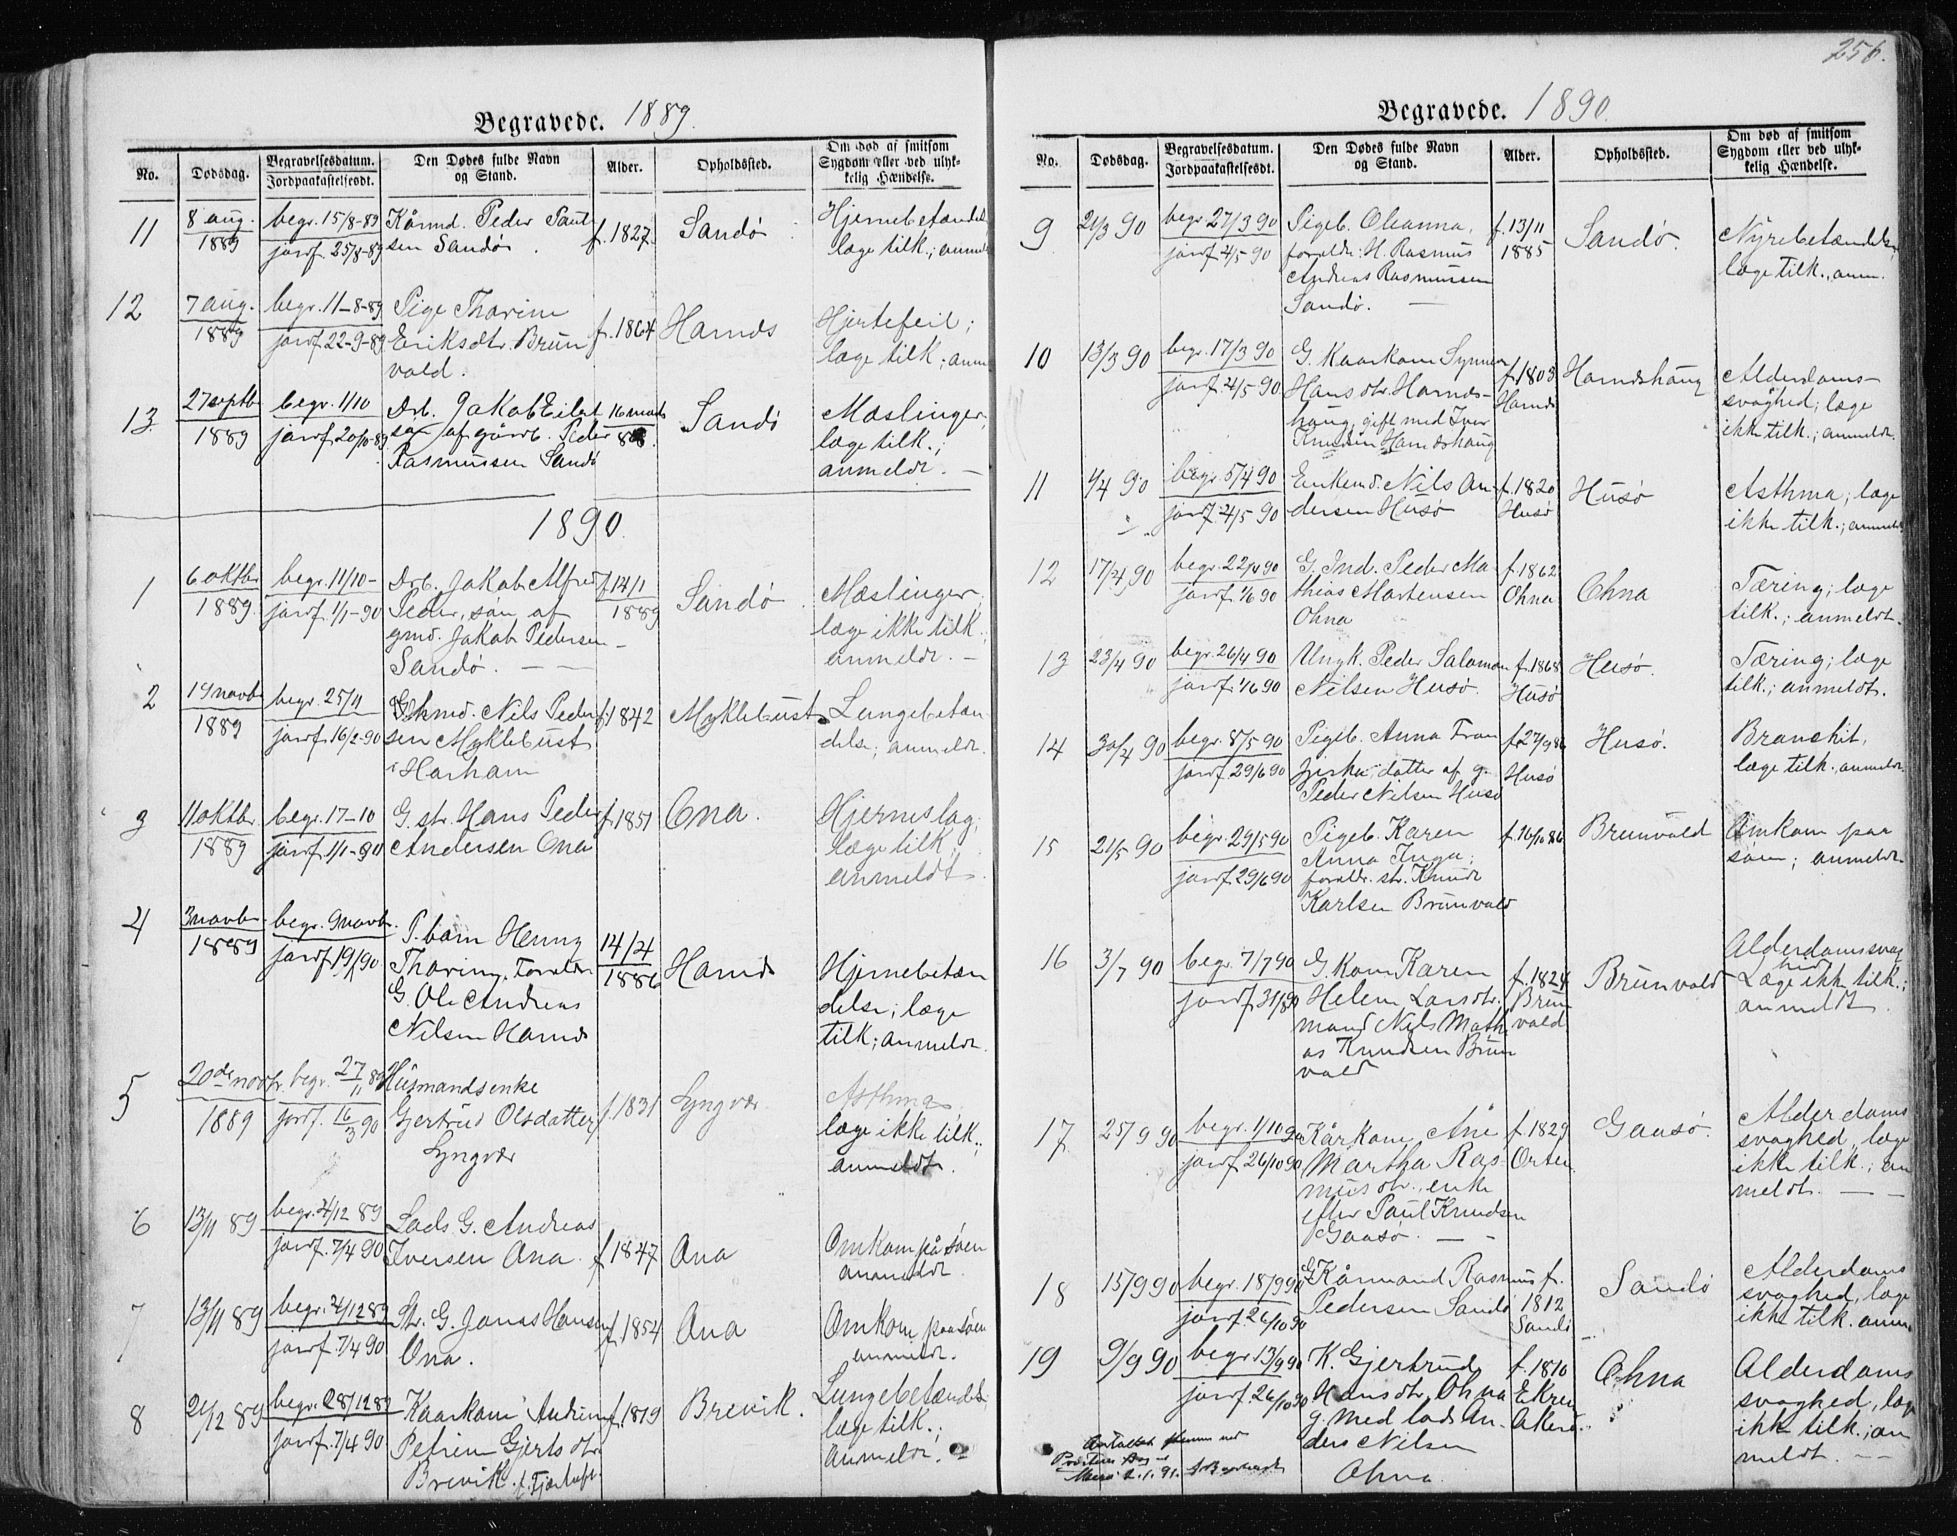 256.
Begravede. 1889.
No.
Dødsdag.
Begravelsesdatum.
Jordpaakastelsesdt.
Den Dødes fulde Navn
og Stand.
Alder.
Opholdssted.
Om død af smitsom
Sygdom eller ved ulyk-
kelig Hændelse.
11
8 aug.
1889
begr. 15/8-89
jordf. 25/8-89
Kårmd. Peder Paul
sen Sandø.
f. 1827.
Sandø
Hjernebetændel
læge tilk.; anmel
12
7 aug.
1889
begr. 11-8-89
jordf. 22-9-89
Pige Thorine
Eriksdtr. Brun
vold.
f. 1864
Harnds
Hjertefeil;
læge tilk.; anm
13
27 septb
1889
begr. 1/10
jordf. 20/10-89
Drb. Jakob Eilert
søn af gårdb. Peder
Rasmussen Sandø
16 marts
Sandø
Mæslinger;
læge tilk.;
anmeldt. —
1890.
1
6 oktbr
1889
begr. 11/10-
jordf. 1/1-90
Drb. Jakob Alfred
Peder, søn af
gmd. Jakob Pedersen
Sandø. — —
f. 14/1
1889
Sandø.
Mæslinger;
læge ikke tilk.;
anmeldt. —
2
19 novb
1889
begr. 25/11
jordf. 16/2-90
Nils Peder
sen Myklebust
i Harham
f. 1842
Myklebust
Lungebetæn
delse; anmeldt.
3
11 oktbr
1889
begr. 17-10
jordf. 1/1-90
G. str. Hans Peder
Andersen Ona
f. 1851
Ona.
Hjerneslag;
læge tilk.
anmeldt.
4
3 novbr
1889
begr. 9 novbr.
jordf. 19/1 90
P. barn Henny
Thorine. Forældr
G. Ole Andreas
Nilsen Harnds
14/4
1886
Harnds
Hjernebetæn
delse; læge
tilk.; anmeldt.
5
20de novbr.
1889
begr. 27/11 89
jordf. 16/3 90
Husmandsenke
Gjertrud Olsdatter
Lyngvær
f. 1831
Lyngvær
Asthma
læge ikke tilk.;
anmeldt.
6
13/11 89
begr. 4/12 89
jordf. 7/4 90
Lods G. Andreas
Iversen Ona.
f. 1847
Ona
Omkom på søen
anmeldt.
7
13/11 89
begr. 4/12 89
jordf. 7/4 90
Str. G. Jonas Hansen
Ona.
f. 1854
Ona
Omkom paa søen
anmeldt.
8
21/12 89
begr. 28/12 89
jordf. 7/4 90
Kaarkone Andrine
Petrine Gjertsdtr.
Brevik. f. Fjærtoft
f. 1819
Brevik.
Lungebetændels
læge tilk.;
anmeldt. —
Begravede. 1890.
No.
Dødsdag.
Begravelsesdatum.
Jordpaakastelsesdt.
Den Dødes fulde Navn
og Stand.
Alder.
Opholdssted.
Om død af smitsom
Sygdom eller ved ulyk-
kelig Hændelse.
9
21/3 90
begr. 27/3 90
jordf. 4/5-90
Pigeb. Oleanna,
forældr: H. Rasmus
Andreas Rasmussen
Sandø. —
f. 13/11
1885
Sandø.
Nyrebetændelse,
læge tilk., anm.
10
13/3 90
begr. 17/3 90
jordf. 4/5 90
G. Kaarkone Synnev
Hansdtr. Harnds-
haug, gift med Iver
Knudsen Harndshaug
f. 1803
Harnds
Harndshaug
Alderdoms-
svaghed; læge
ikke tilk.; anmeldt.
11
1/4 90
begr. 5/4 90
jordf. 4/5 90
Enkemd. Nils An-
dersen Husø
f. 1820
Husø
Husø
Asthma; læge
ikke tilk.; anmeldt
12
17/4 90
begr. 22/4 90
jordf. 1/6 90
G. Ind. Peder Ma-
thias Martensen
Ohna
f. 1862
Ohna
Ohna
Tæring; læge
tilk.; anmeldt.
13
23/4 90
begr. 26/4 90
jordf. 1/6 90
Ungk. Peder Salomon
Nilsen Husø.
f. 1868
Husø
Husø.
Tæring; læge
tilk.; anmeldt.
14
30/4 90
begr. 8/5 90
jordf. 29/6 90
Pigeb. Anna Fran
ziska, datter af g.
Peder Nilsen Husø
f. 27/9 86
Husø
Husø.
Bronchit,
læge tilk., anmeldt
15
21/5 90
begr. 29/5 90
jordf. 29/6 90
Pigeb. Karen
Anna Inga;
forældr. str. Knudt
Karlsen Brunvold
f. 16/10 86
Brunvold
Omkom paa
søen; anmeldt
16
3/7 90
begr. 7/7 90
jordf. 31/8 90
G. Kone Karen
Helene Larsdtr.
mand Nils Math
as Knudsen Brun
vold
f. 1824
Brun
vold
Brunvold
Alderdomssvag
hed
Læge ikke tilk.;
anmeldt.
17
25/9 90
begr. 1/10 90
jordf. 26/10 90
Kårkone Ane
Martha Ras-
musdtr., enke
efter Paul Knudsen
Gaasø. — -
f. 1829
Orten
Gaasø.
Alderdoms
svaghed, læge
ikke tilk.; an
meldt. — —
18
15/9 90
begr. 18/9 90
jordf. 26/10 90
G. Kårmand Rasmus
Pedersen Sandø
f.
1812
Sandø
Sandø
Alderdoms
svaghed, læge
ikke tilk. anm.
19
9/9 90
begr. 13/9 90
jordf. 26/10 90
K. Gjertrud
Hansdtr. Ohna
g. med lods An-
ders Nilsen
Ohna.
f. 1810
Ekren
Akerø
Ohna
Alderdoms
svaghed, læge
ikke tilk.; an
meldt. — -
Antallet stemmer med